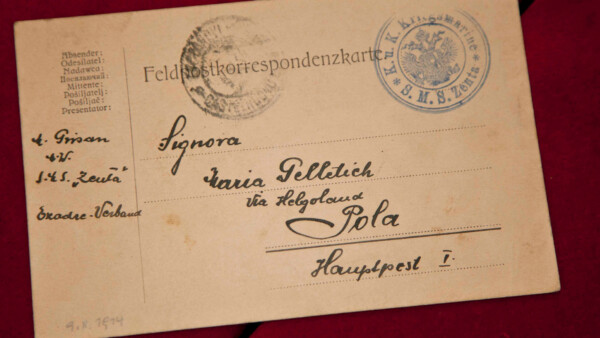 Absender:
Odesilatel:
Nadawca:
Mittente:
Pošiljatelj:
Pošiljač:
Presentator:
Feldpostkorrespondenzkarte
K. u. K. Kriegsmarine
* S. M. S. Zenta *
Grisan
S.M.S. „Zenta"
Escadre-Verband
Signora
Maria Pelletich
Via Helgoland
Pola
Hauptpost I.